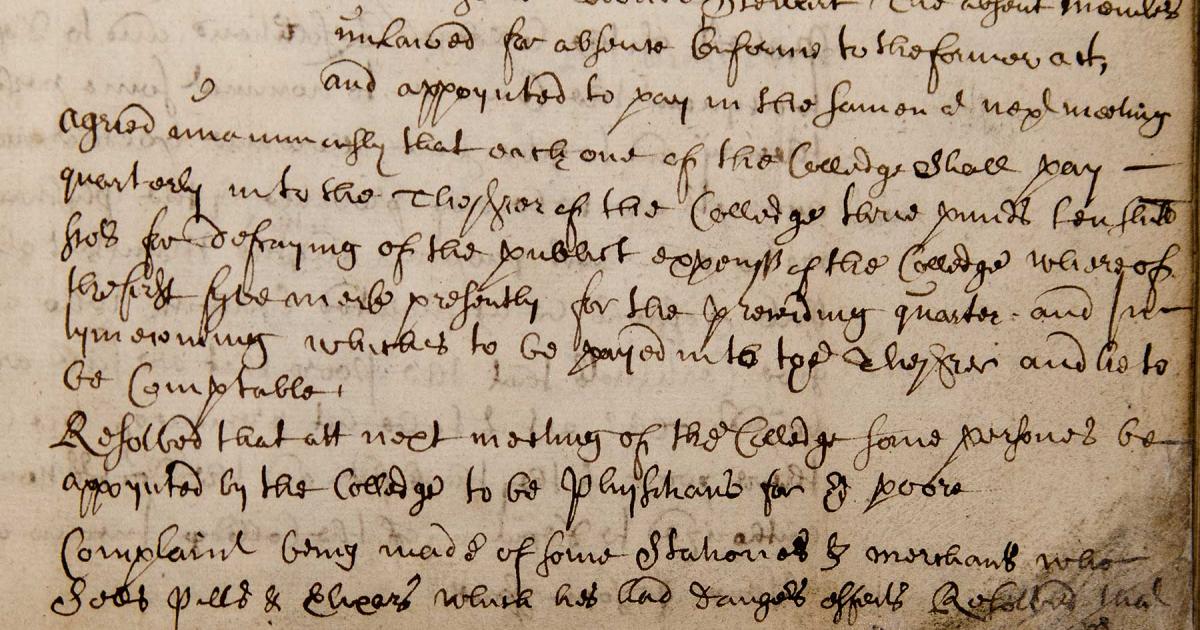 Stewart The absent members
unlawed for absence conforme to the former act,
and appoynted to pay in the samen at next meeting
Agried unanimously that each one of the Colledge Shall pay —
quarterly into the Thesurer of the Colledge three punds ten shill
ins for defraying of the publict expenss of the Colledge whereof
the first fyve merks presently for the preceiding quarter and in
tymecoming whiches to be payed into the Thesurer and he to
be Comptable
Resolved that att next meeting of the Colledge some persones be
appoynted by the Colledge to be Phisitians for ye poore
Complaint being made of some Stationes & merchants who
Sells Pills & Elixers which hes had dangers effects Resolved that